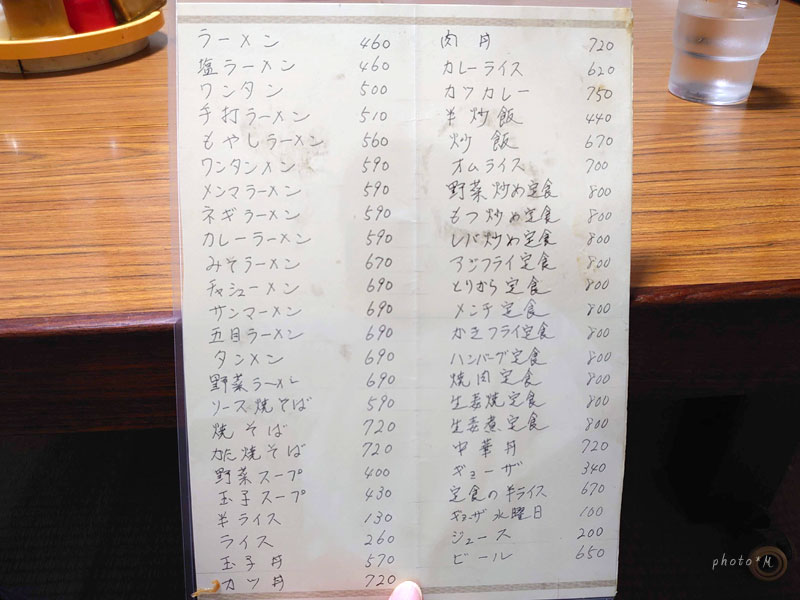 ラーメン 460
塩ラーメン 460
ワンタン 500
手打ラーメン 510
もやしラーメン 560
ワンタンメン 590
メンマラーメン 590
ネギラーメン 590
カレーラーメン 590
みそラーメン 670
チャシューメン 690
サンマーメン 690
五目ラーメン 690
タンメン 690
野菜ラーメン 690
ソース焼そば 590
焼そば 720
かた焼そば 720
野菜スープ 400
玉子スープ 430
半ライス 130
ライス 260
玉子丼 570
カツ丼 720
肉丼 720
カレーライス 620
カツカレー 750
半炒飯 440
炒飯 670
オムライス 700
野菜炒め定食 800
もつ炒め定食 800
レバ炒め定食 800
アジフライ定食 800
とりから定食 800
メンチ定食 800
かきフライ定食 800
ハンバーグ定食 800
焼肉定食 800
生姜焼定食 800
生姜煮定食 800
中華丼 720
ギョーザ 340
定食の半ライス 670
ギョーザ水曜日 100
ジュース 200
ビール 650
photo*M